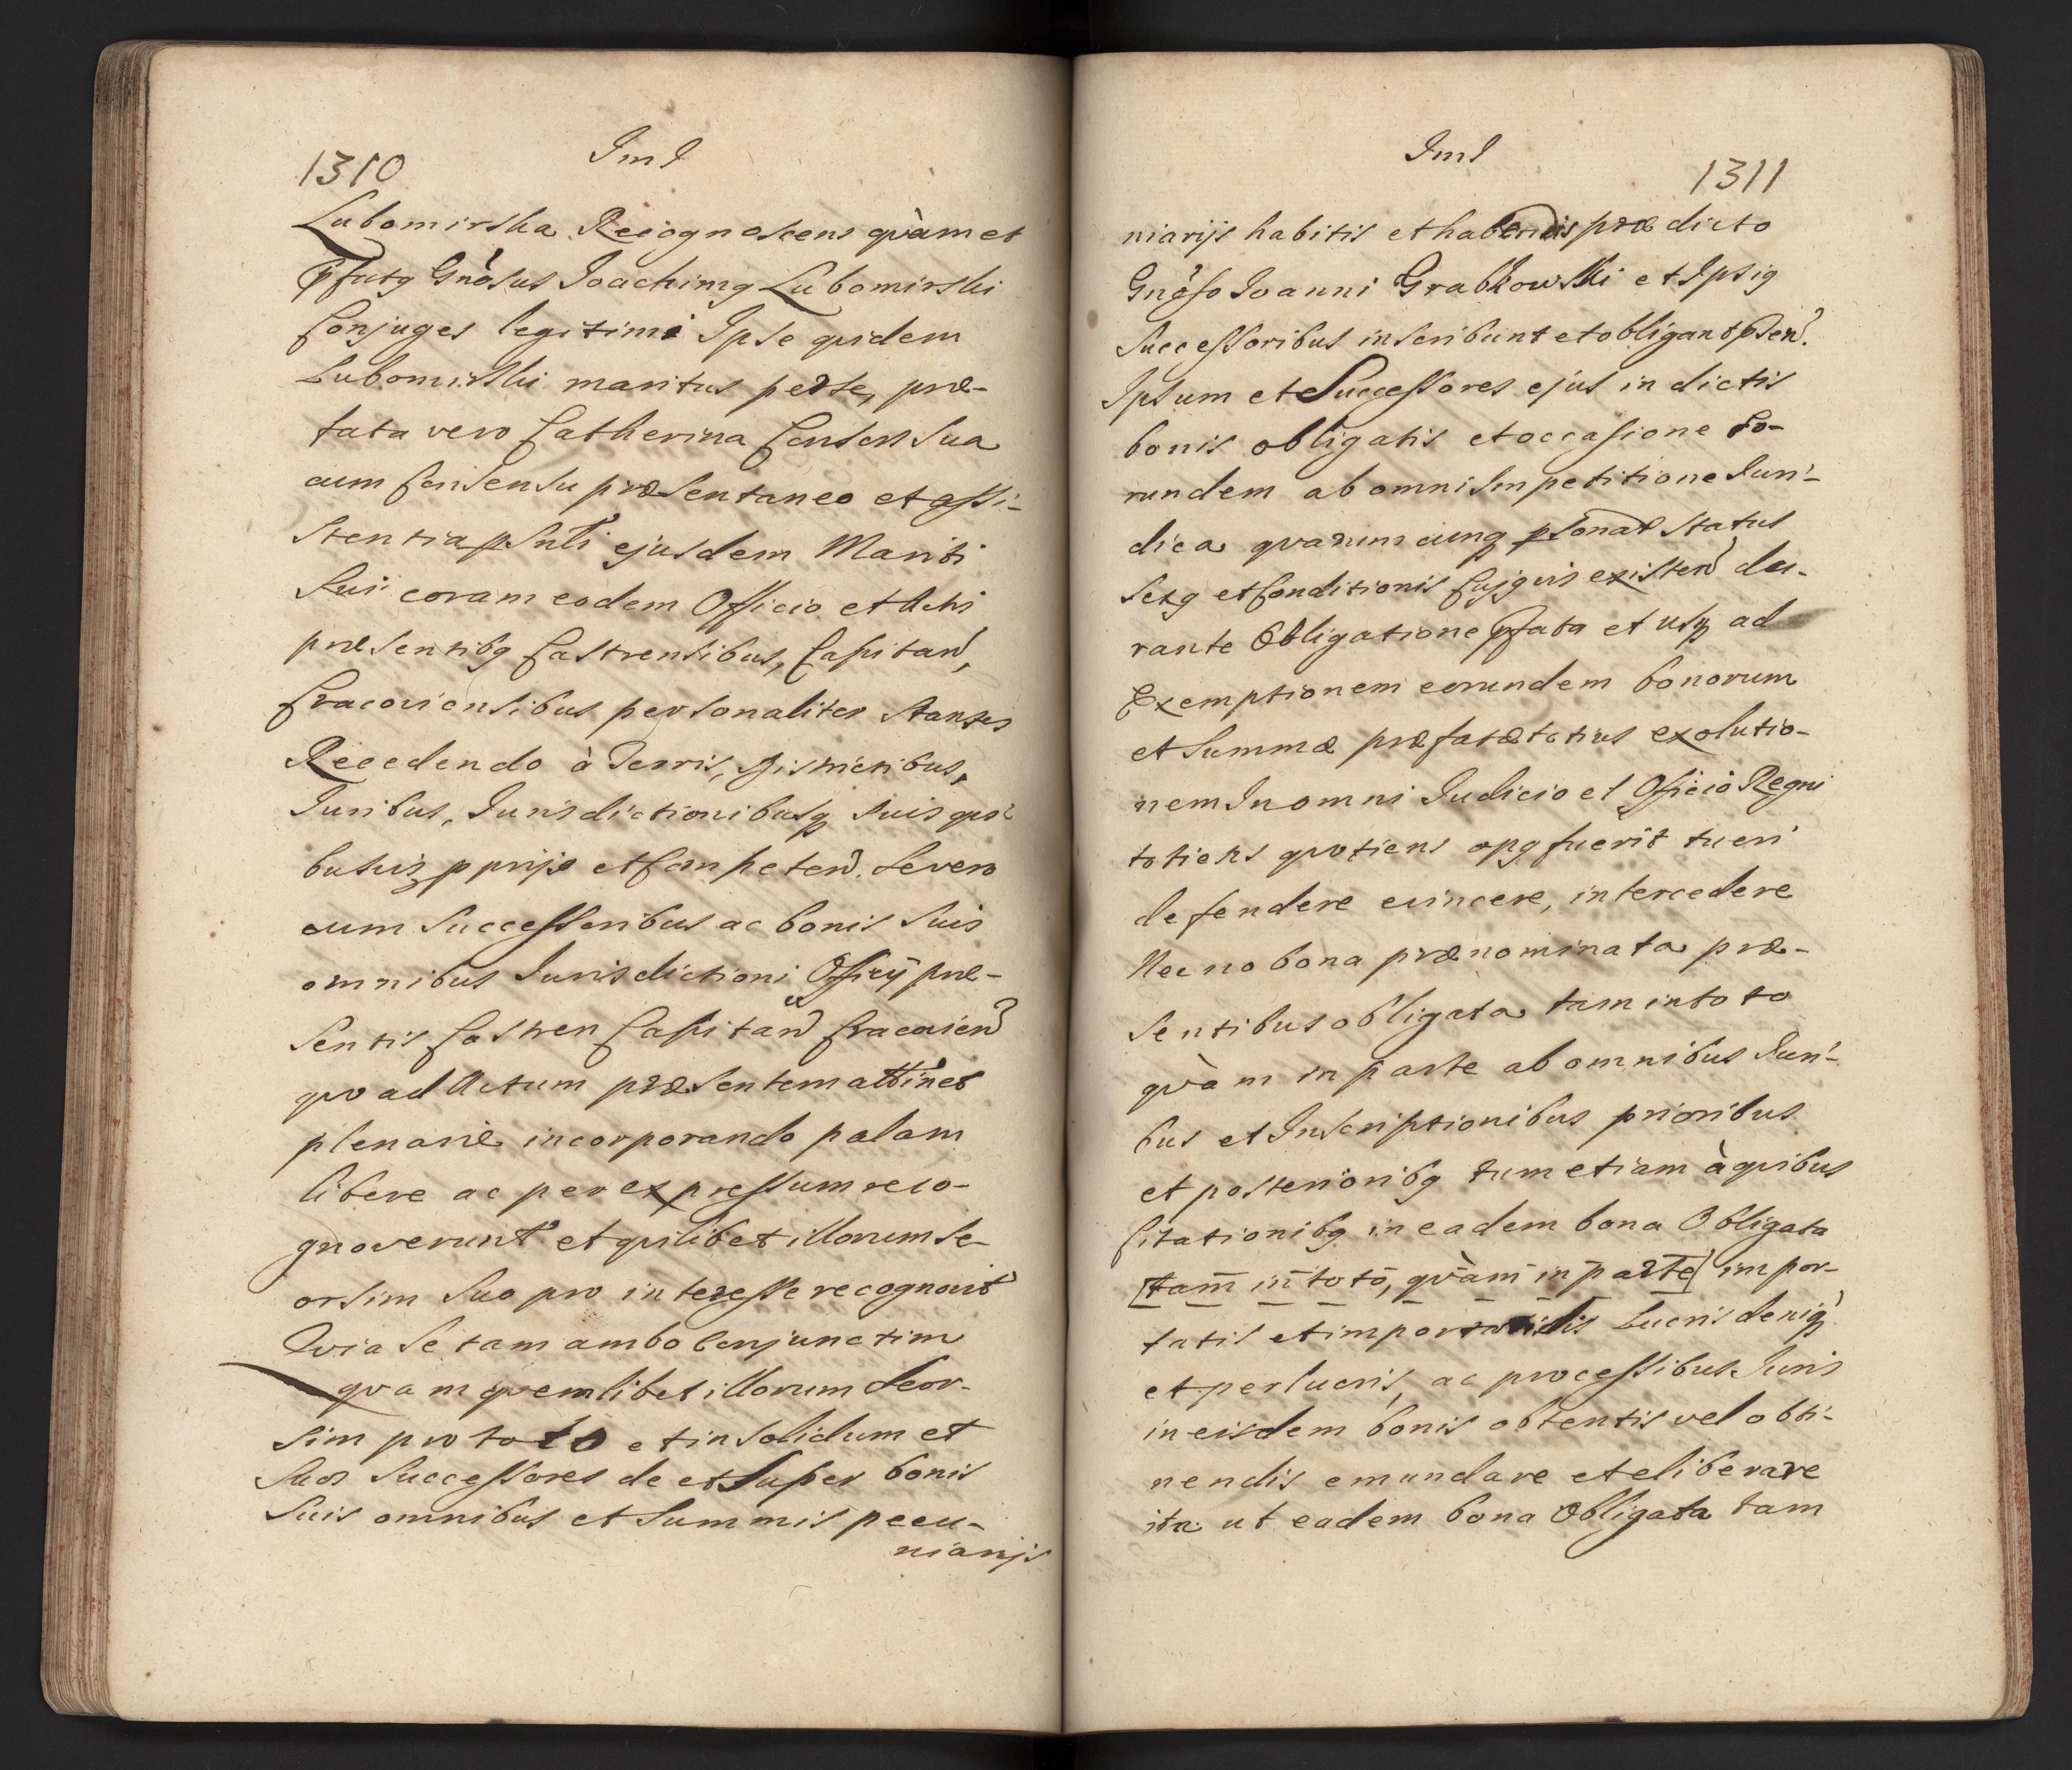 1310
Iml
Lubomirska Recognoscens quàm et
Pfatg Gnòsus Joachimg Lubomirski
Conjuges legitimi Ipse quidem
Lubomirski maritus perse, præ-
fata vero Catherina Consors sua
cum Consensu præsentaneo et assi-
stentia psnti ejusdem Mariti
sui coram eodem Officio et Actis
præsentibg Castrensibus, Capitan,
Cracoviensibus personaliter stantes
Recedendo à Terris, Districtibus,
Juribus, Jurisdictionibusq suis qui-
busuis pprijs et Competen. Se vero
cum Successoribus ac bonis suis
omnibus Jurisdictioni Officij præ-
sentis Castren Capitan Cracovien
quo ad Actum præsentem attinet
plenarie incorporando palam
libere ac per expressum reco-
gnoverunt et quilibet illorum se-
orsim suo pro interesse recognovit
Quia se tam ambo conjunctim
quam quemlibet illorum seor-
sim pro toto et in solidum et
suos Successores de et super bonis
suis omnibus et summis pecu-
niarijs
Iml
1311
niarijs habitis et habendis præ dicto
Gnòso Joanni Grabkowski et Ipsig
Successoribus inscribunt et obligant psen.
Ipsum et Successores ejus in dictis
bonis obligatis et occasione Eo-
rundem ab omni Impetitione Juri-
dica quarumcunq psonar status
sexg et Conditionis Cujguis existen du-
rante Obligatione Pfata et usq ad
Exemptionem eorundem bonorum
et Summæ præfatæ totius exolutio-
nem In omni Judicio et Officio Regni
totiens quotiens opg fuerit tueri
defendere evincere, intercedere
Nec no bona prænominata præ-
sentibus obligata tam in toto
quàm in parte ab omnibus Juri-
bus et Inscriptionibus prioribus
et posterioribg tum etiam à quibus
Citationibg in eadem bona Obligata
[tam in toto, quàm in parte] impor-
tatis et importandis Lucris deniq
et perlucris, ac processibus Juris
in eisdem bonis obtentis vel obti-
nendis emundare et eliberare
ita ut eadem bona Obligata tam